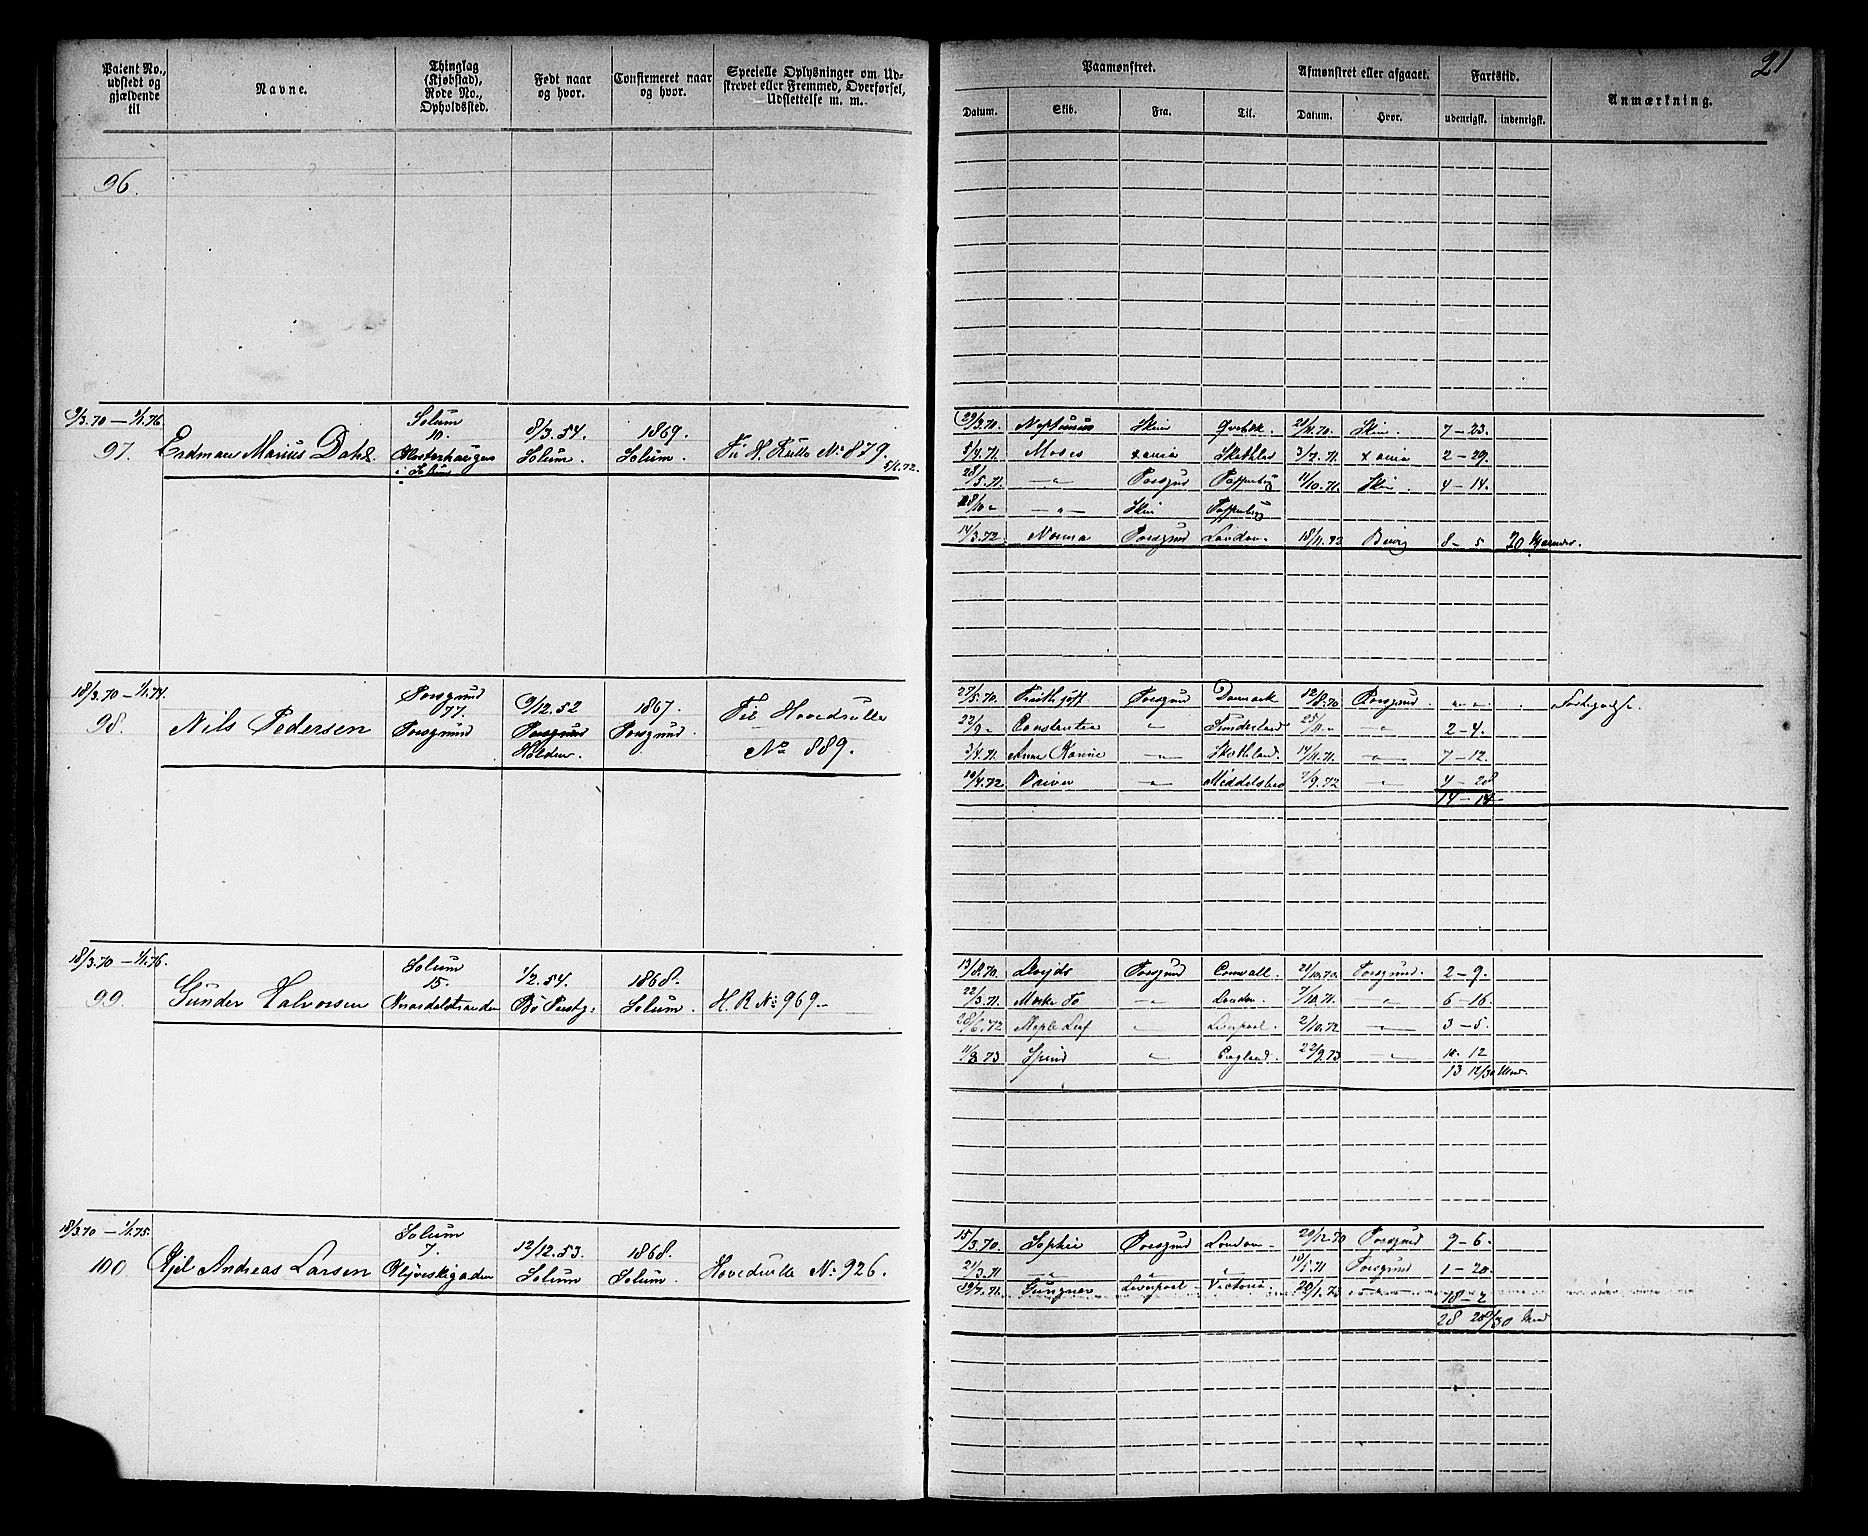 21
Patent No., udstedt og gjældende til
Navne.
Thinglag (Kjøbstad), Rode No., Opholdssted.
Født naar og hvor.
Confirmeret naar og hvor.
Specielle Oplysninger om Udskrevet eller Fremmed, Overførsel, Udslettelse m. m.
Paamønstret.
Afmønstret eller afgaaet.
Fartstid.
Anmærkning.
Datum. Skib. Fra. Til. Datum. Hvor. udenrigsk. indenrigsk.
96.
9/3.70 — 1/1.76.
97. Erdman Marius Dahl
Solum
10.
Klosterhaugen
i Solum
8/3.54.
Solum.
1869.
Solum.
Til H. Rulle No 879.
5/1.72.
29/3.70. Neptunus Skien 21/11.70. Skien. 7 – 23.
5/4.71. Moses xania 3/7.71. xania 2 – 29.
28/5.71. —"— Porsgrund 4/10.71. Skien. 4 – 14.
18/10 " —"— Skien
14/3.72. Norma Porsgrund London. 18/11.72 Brevig 8 – 5. 20
18/3.70 — 1/1.74.
98. Nils Pedersen
Porsgrund
77.
Porsgrund
9/12.52
Porsgrund
Holden.
1867.
Porsgrund.
Til Hovedrulle
No 889.
27/5.70. Porsgrund Danmark 12/8.70 Porsgrund " "
22/9 " Constantia " Sunderland 25/11 " " 2 – 4.
3/4.71. Anne Karine —"— 14/11.71. —"— 7 – 12.
10/4.72. —"— Middelsbro 7/9.72 —"— 4 – 28
14 – 14
18/3.70 — 1/1.76.
99. Gunder Halvorsen
Solum
15.
Knardalstranden
1/2.54.
Bø Præstg:
1868.
Solum.
H. R No 969.
13/8.70. Lloyds Porsgrund Cornvall. 21/10.70. Porsgrund. 2 – 9.
22/3.71. —"— London. 7/10.71. " 6 – 16.
28/6.72 Maple Leaf " Liverpool. 2/10.72 —"— 3 – 5.
11/3.73 Spind " England. 22/9.73 —"— 12
13 12/30 Mnd.
18/3.70 — 1/1.75.
100. Andreas Larsen
Solum
7.
12/12.53.
Solum
1868.
Solum.
Hovedrulle No 926.
15/3.70. Sophie Porsgrund London 20/12.70 Porsgrund 9 – 6.
21/3.71 —"— " " 10/5.71 Porsgrund 1 – 20.
19/7.71. Gungner Liverpool Victoria 20/1.73 18 – 2
28 28/30 Mnd